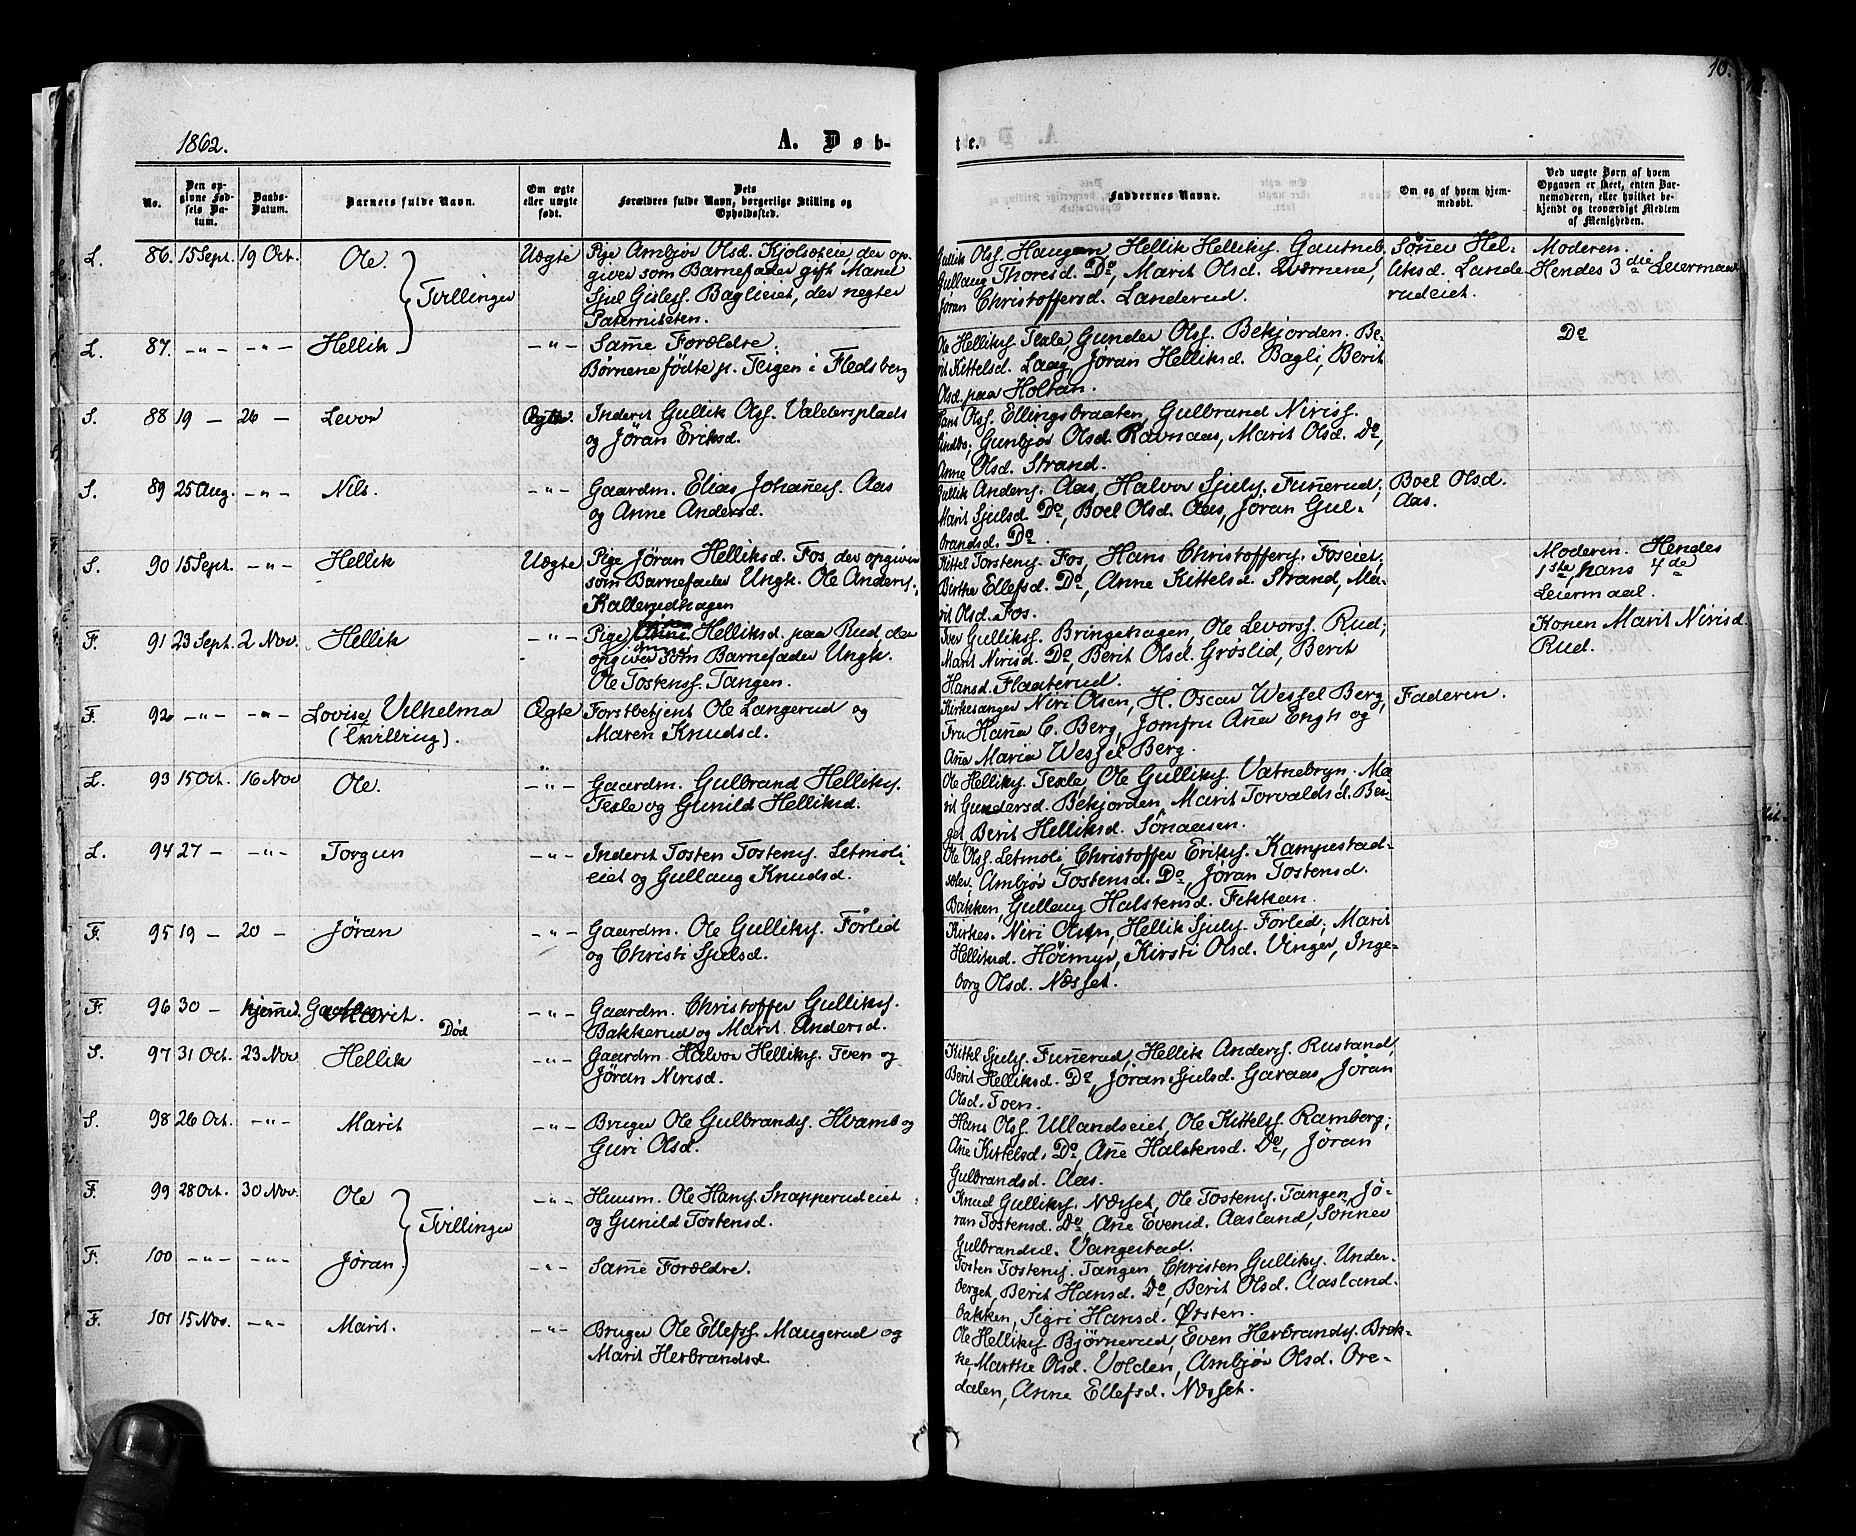 10.
1862. A. Døb-
te.
No.
Den op-
givne Fød-
sels Da-
tum.
Daabs-
Datum.
Barnets fulde Navn.
Om ægte
eller uægte
født.
Dets
Forældres fulde Navn, borgerlige Stilling og
Opholdssted.
Faddernes Navne.
Om og af hvem hjem-
medøbt.
Ved uægte Børn af hvem
Opgaven er skeet, enten Bar-
nemoderen, eller hvilket be-
kjendt og troværdigt Medlem
af Menigheden.
L. 86. 15 Sept. 19 Oct. Ole. Tvillinger Uægte
Pige Ambjør Olsd. Kjolseie, der op-
giver som Barnefader gift Mand
Sjul Gislesf. Baglieiet, der negter
Paterniteten.
Gullik Olsf. Haugen, Hellik Helliksf. Gautneb
Gullaug Thoresd. Do, Marit Olsd. Qværnene,
Jøran Christoffersd. Landerud.
Sønnev Hel-
liksd. Lande-
rudeiet.
Moderen.
Hendes 3die Leiermaal
L. 87. -"- -"- Hellik -"-
Same Forældre.
Børnene fødte p. Teigen i Fledsberg
Ole Helliksf. Texle, Gunder Olsf. Bekjorden. Be-
rit Kittelsd. Laag, Jøran Helliksd. Bagli, Berit
Olsd. paa Holtan.
Do
S. 88 19 - 26 - Levor Ægte.
Inderst Gullik Olsf. Valdersplads
og Jøran Eriksd.
Hans Olsf. Ellingsbraaten, Gulbrand Nirisf.
Gunbjør Olsd. Ravnaas, Marit Olsd. Do,
Anne Olsd. Strand.
S. 89 25 Aug. -"- Nils. -"-
Gaardm. Elias Johanesf. Aas
og Anne Andersd.
Gullik Andersf. Aas, Halvor Sjulsf. Funerud;
Marit Sjulsd. Do, Boel Olsd. Aas, Jøran Gul-
brandsd. Do.
Boel Olsd.
Aas.
S. 90 15 Sept. -"- Hellik Uægte
Pige Jøran Helliksd. Fos, der opgiver
som Barnefader Ungk. Ole Andersf.
Kallerudhagen
Kittel Torstensf. Fos, Hans Christoffersf. Foseiet,
Birthe Ellefsd. Do, Anne Kittelsd. Strand, Ma-
rit Olsd. Fos.
Moderen. Hendes
1ste, hans 4de
Leiermaal.
F. 91 23 Sept. 2 Nov. Hellik -"-
Pige Helliksd. paa Rud, der
opgiver som Barnefader Ungk.
Ole Tostensf. Tangen.
Iver Gulliksf. Bringehagen, Ole Levorsf. Rud;
Marit Nirisd. Do, Berit Olsd. Groslid, Berit
Hansd. Flaaterud.
Konen Marit Nirisd.
Rud.
F. 92 -"- -"- Lovise Vilhelma
(tvilling).
Ægte
Forstbetjent Ole Langerud og
Maren Knudsd.
Kirkesanger Niri Olsen, H. Oscar Wessel Berg,
Fru Hana C. Berg, Jomfru Ana Engh og
Ana Maria Wessel Berg.
Faderen.
L. 93 15 Oct. 16 Nov Ole. -"-
Gaardm. Gulbrand Helliksf.
Texle og Gunild Helliksd.
Ole Helliksf. Texle, Ole Gulliksf. Vatnebryn. Ma-
rit Gundersd. Bekjorden, Marit Torvaldsd. Ber-
get, Berit Helliksd. Sønaasen.
L. 94 27 - -"- Torgun -"-
Inderst Tosten Tostensf. Letmoli-
eiet og Gullaug Knudsd.
Ole Olsf. Letmoli, Christoffer Eriksf. Kampestad-
Ambjør Tostensd. Do, Jøran Tostensd.
Bakken, Gullaug Halstensd. Fekkan.
F. 95 19 - 20 - Jøran -"-
Gaardm. Ole Gulliksf. Førlid
og Christi Sjulsd.
Kirkes. Niri Olsen, Hellik Sjulsf. Førlid; Marit
Helliksd. Høimyr, Kirsti Olsd. Vinger, Inge-
borg Olsd. Næsset.
F. 96 30 - hjemed. Marit. Død -"-
Gaardm. Christoffer Gulliksf.
Bakkerud og Marit Andersd.
S. 97 31 Oct. 23 Nov. Hellik -"-
Gaardm. Halvor Helliksf. Tven og
Jøran Nirisd.
Kittel Sjulsf. Funerud, Hellik Andersf. Rustand,
Berit Helliksd. Do, Jøran Sjulsd. Garaas, Jøran
Olsd. Toen.
S. 98 26 Oct. -"- Marit -"-
Bruger Ole Gulbrandsf. Hvamb og
Guri Olsd.
Hans Olsf. Ullandseiet, Ole Kittelsf. Ramberg;
Ane Kittelsd. Do, Ane Halstensd. Do, Jøran
Gulbrandsd. Aas.
F. 99 28 Oct. 30 Nov. Ole Tvillinger -"-
Huusm. Ole Hansf. Snapperudeiet
og Gunild Tostensd.
Knud Gulliksf. Næsset, Ole Tostensf. Tangen, Jø-
ran Tostensd. Do, Ane Evensd. Aasland, Sønnev
Gulbrandsd. Vangestad.
F. 100 -"- -"- Jøran -"-
Same Forældre.
Tosten Tostensf. Tangen, Christen Gulliksf. Under-
berget, Berit Hansd. Do, Berit Olsd. Aasland.
bakken, Sigri Hansd. Ørsten.
F. 101 15 Nov. -"- Marit. -"-
Bruger Ole Ellefsf. Maugerud og
Marit Herbrandsd.
Ole Helliksf. Bjørnerud, Even Herbrandsf. Brek-
ke, Marthe Olsd. Volden, Ambjør Olsd. Ore-
dalen, Anne Ellefsd. Næsset.